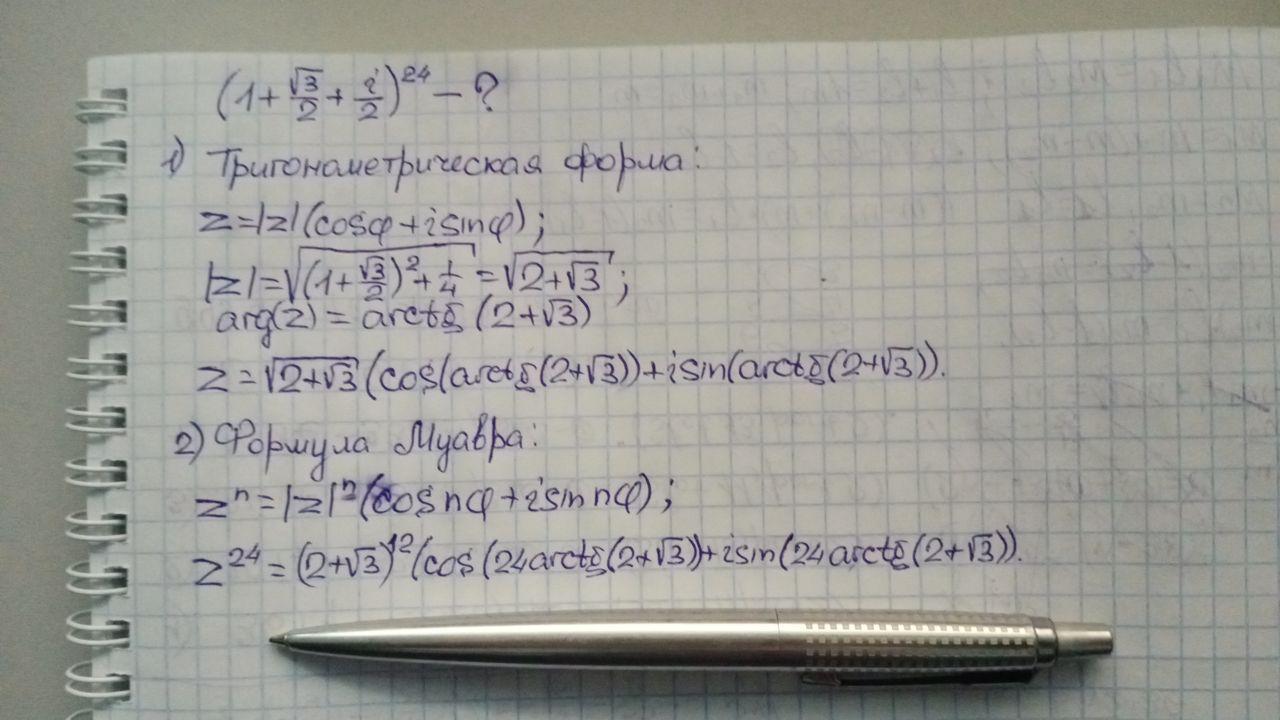 (1+√3/2+i/2)^24 - ?
1) Тригонометрическая форма:
z=|z|(cosφ+isinφ);
|z|=√((1+√3/2)^2+1/4)=√(2+√3);
arg(z)=arctg(2+√3)
z=√(2+√3)(cos(arctg(2+√3))+isin(arctg(2+√3)).
2) Формула Муавра:
z^n=|z|^n(cosnφ+isinnφ);
z^24=(2+√3)^12(cos(24arctg(2+√3))+isin(24arctg(2+√3)).